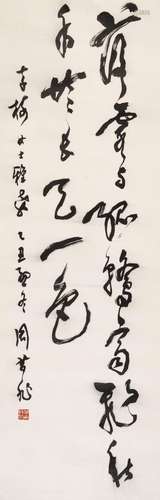 落霞与孤鹜齐飞秋
水共长天一色
女士雅嘱 乙丑
周昔非